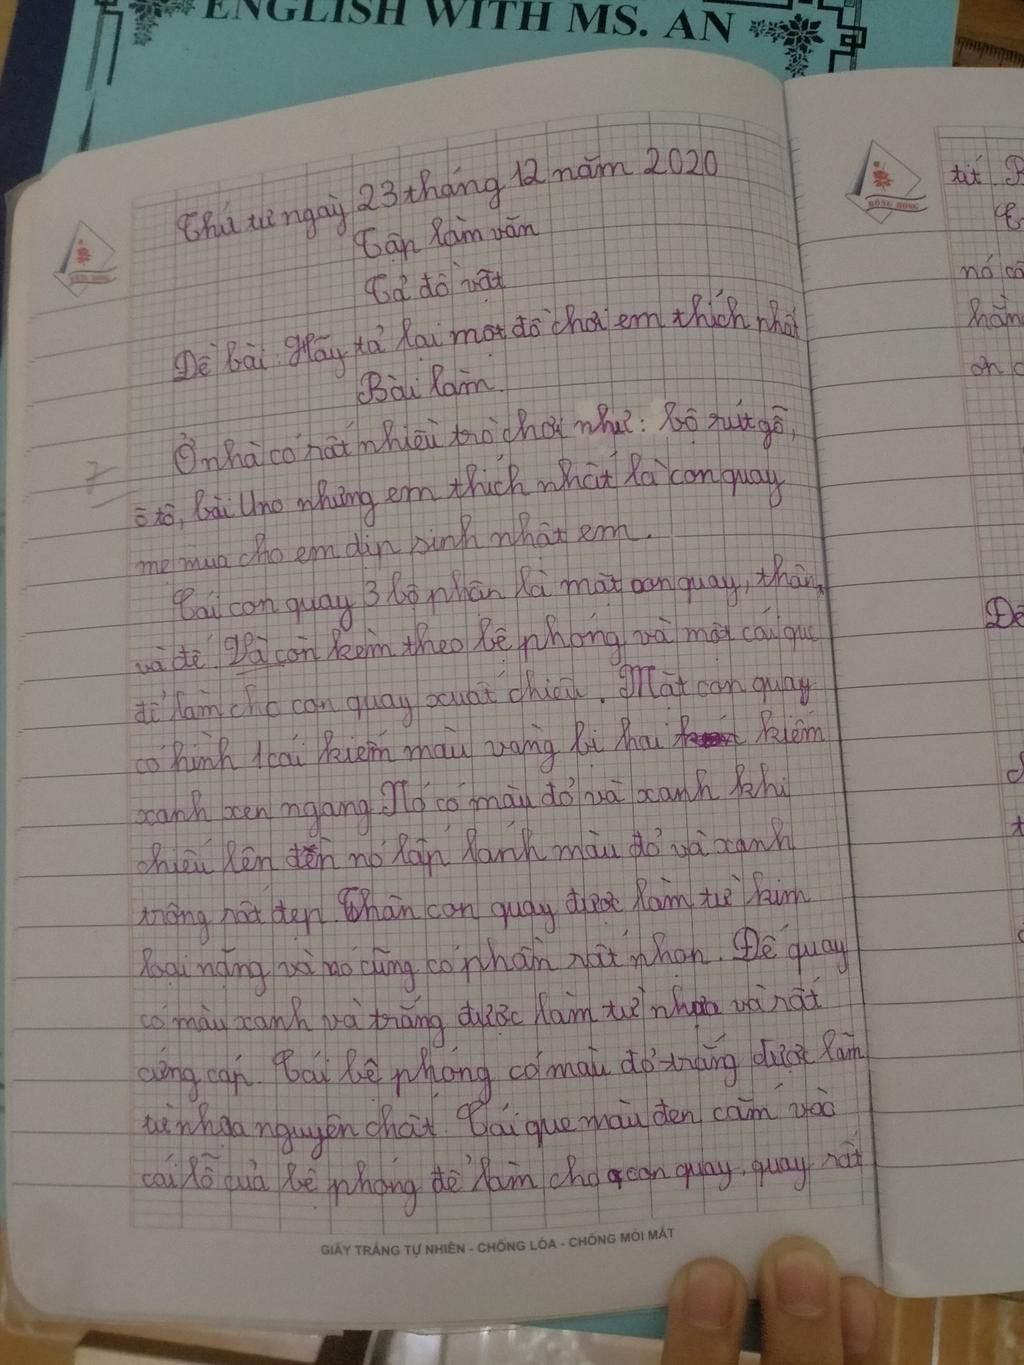 ENGLISH WITH MS. AN
Thứ tư ngày 23 tháng 12 năm 2020
Tập làm văn
Tả đồ vật
Đề bài: Hãy tả lại một đồ chơi em thích nhất
Bài làm.
Ở nhà có rất nhiều trò chơi như: bộ rút gỗ,
ô tô, bài Uno nhưng em thích nhất là con quay
mẹ mua cho em dịp sinh nhật em.
Cái con quay 3 bộ phận là mặt con quay, thân,
và đế. Và còn kèm theo bệ phóng và một cái que
để làm cho con quay xuất chiêu. Mặt con quay
có hình 1 cái kiếm màu vàng bị hai kiếm
xanh xen ngang. Nó có màu đỏ và xanh khi
chiếu lên đèn nó lấp lánh màu đỏ và xanh
trông rất đẹp. Thân con quay được làm từ kim
loại nặng và nó cũng có phần rất nhọn. Đế quay
có màu xanh và trắng được làm từ nhựa và rất
cứng cáp. Cái bệ phóng có màu đỏ trắng được làm
từ nhựa nguyên chất. Cái que màu đen cắm vào
cái lỗ của bệ phóng để làm cho con quay, quay rất
GIẤY TRẮNG TỰ NHIÊN - CHỐNG LÓA - CHỐNG MỎI MẮT
HỒNG HÀ
nó có
Đề